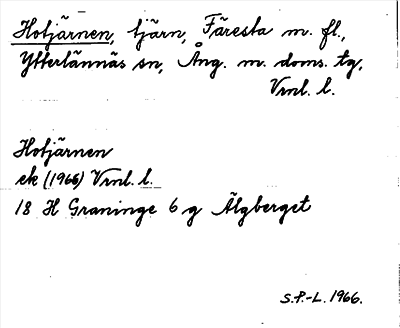 Hotjärnen, tjärn, Färesta m. fl.,
Ytterlännäs sn, Ång. m. doms. tg.
Vrnl. l.
Hotjärnen
ek (1966) Vrnl. l.
18 H Graninge 6 g Älgberget
S.P.-L. 1966.